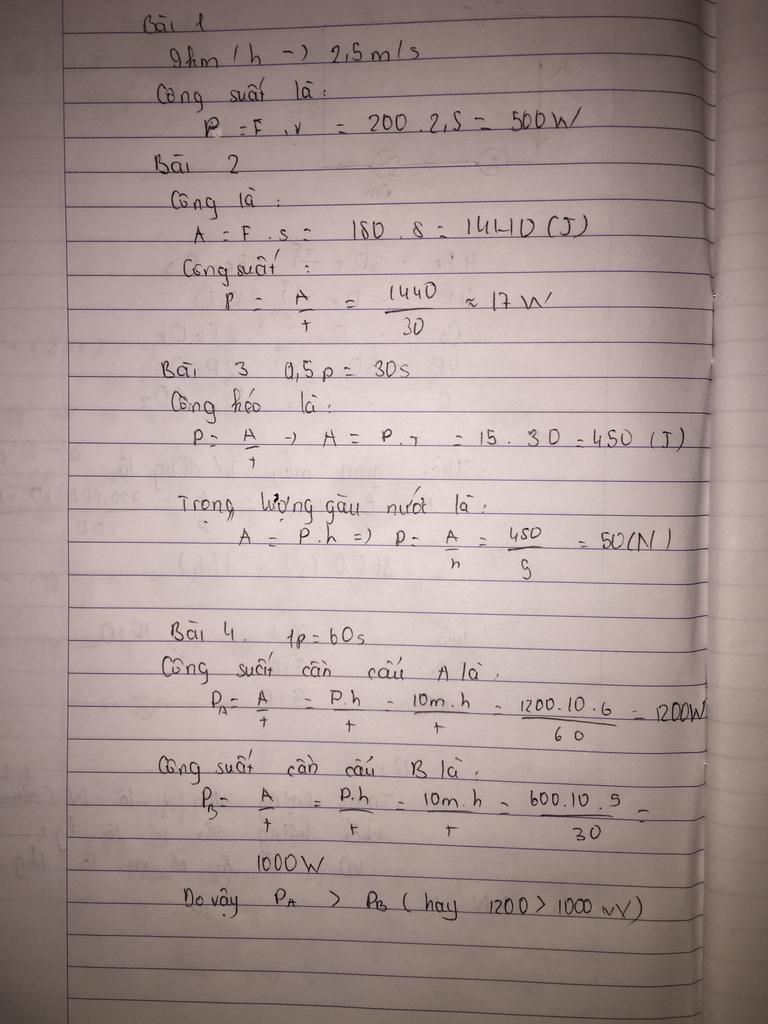 Bài 1
9km/h -> 2,5m/s
Công suất là:
P = F.v = 200.2,5 = 500W
Bài 2
Công là:
A = F.s = 180.8 = 1440 (J)
Công suất:
P = A/t = 1440/30 ≈ 17W
Bài 3 0,5p = 30s
Công kéo là:
P = A/t -> A = P.t = 15.30 = 450 (J)
Trọng lượng gàu nướt là:
A = P.h => P = A/h = 450/9 = 50(N)
Bài 4. 1p = 60s
Công suất cần cẩu A là:
P_A = A/t = P.h/t = 10m.h/t = 1200.10.6/60 = 1200W
Công suất cần cẩu B là:
P_B = A/t = P.h/t = 10m.h/t = 600.10.5/30 =
1000W
Do vậy P_A > P_B (hay 1200 > 1000 W)